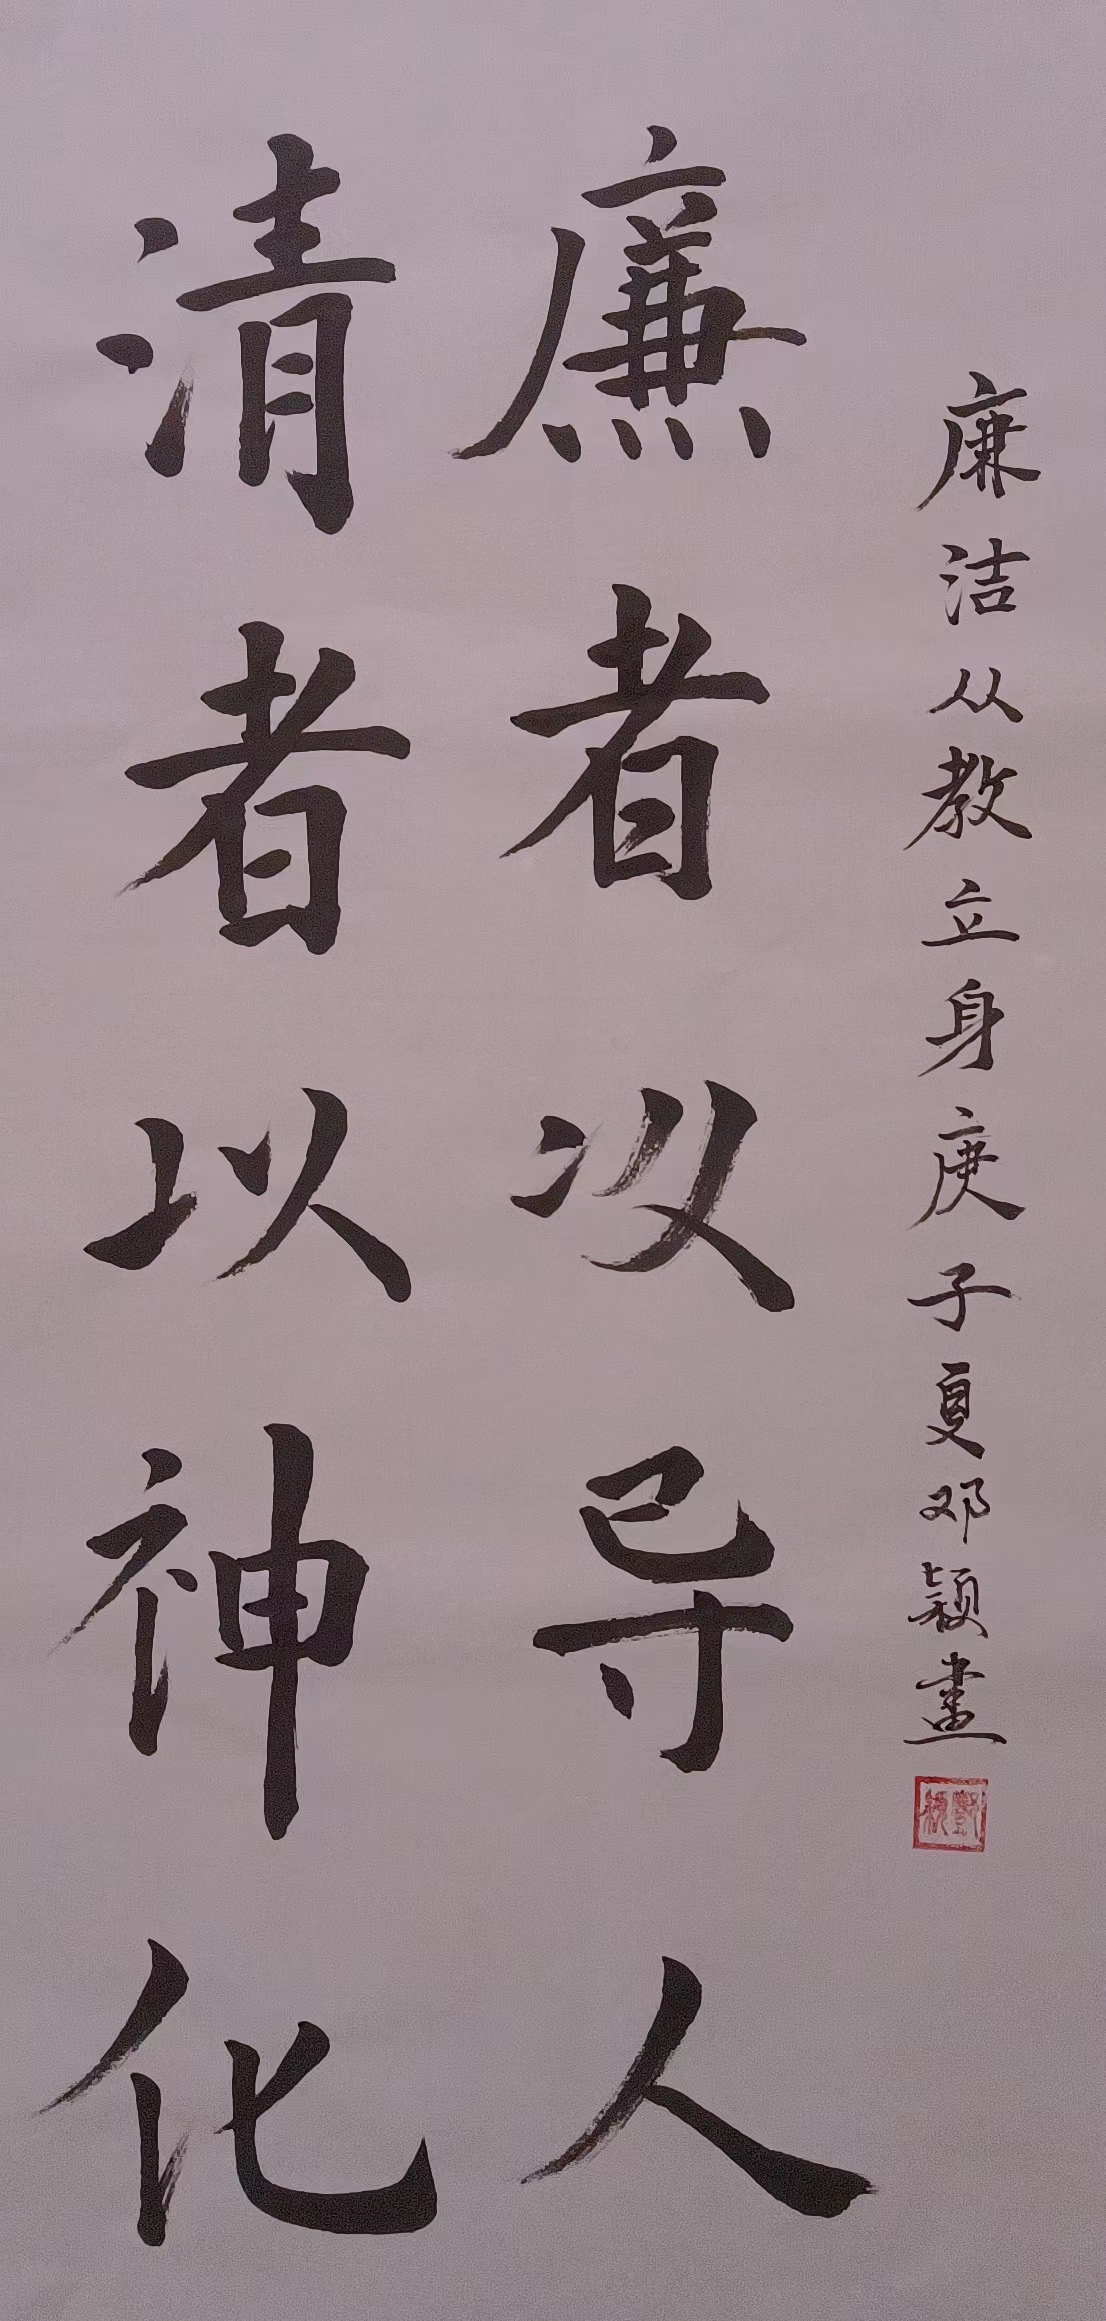 廉洁从教立身庚子夏邓颖畫
鄧穎
廉者以导人
清者以神化